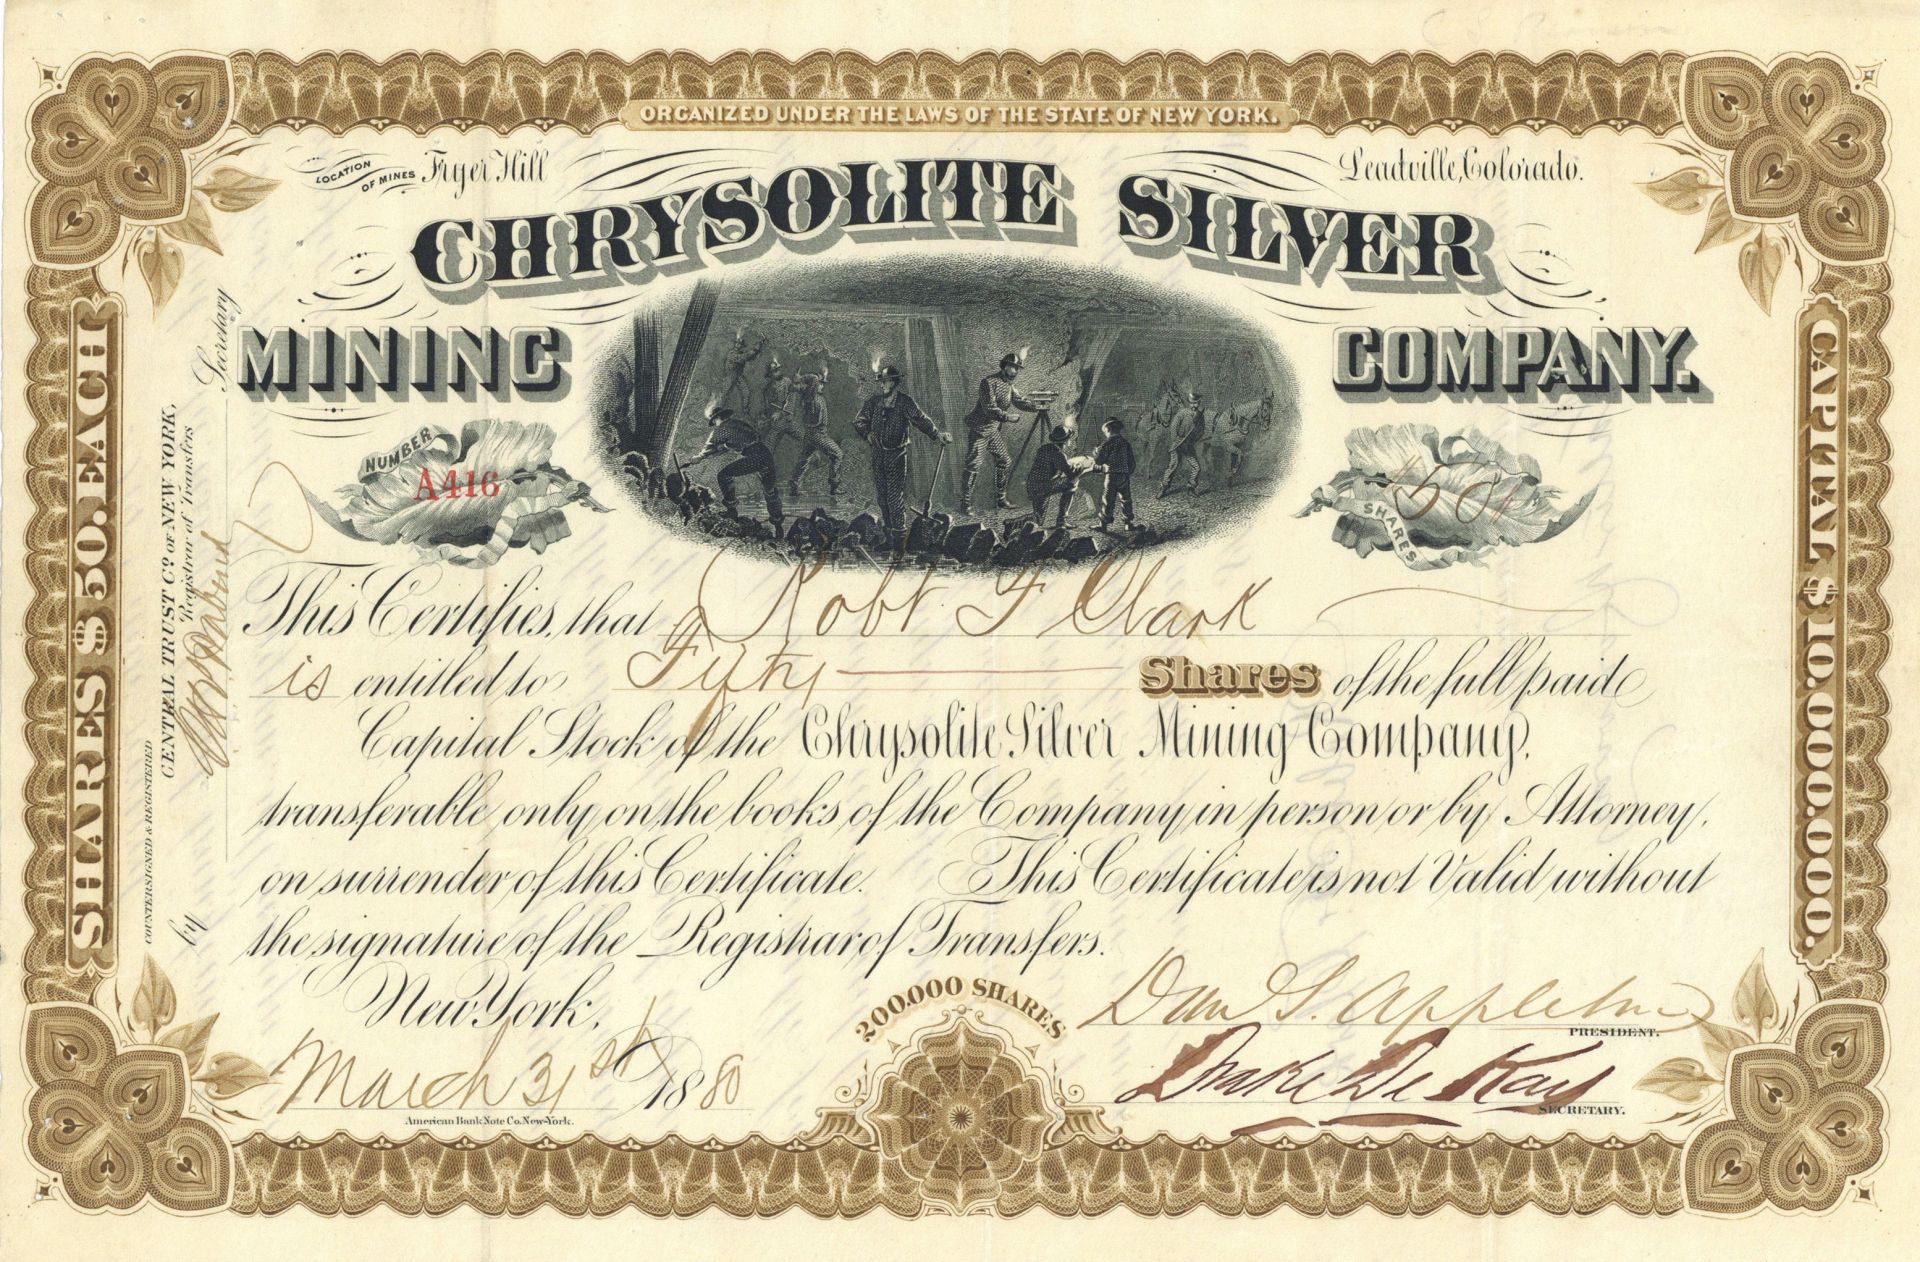 ORGANIZED UNDER THE LAWS OF THE STATE OF NEW YORK.
LOCATION OF MINES Fryer Hill
Leadville, Colorado.
CHRYSOLITE SILVER
MINING COMPANY.
NUMBER
A416
50
SHARES
This Certifies, that Robt F Clark
is entitled to Fifty Shares of the full paid
Capital Stock of the Chrysolite Silver Mining Company,
transferable only on the books of the Company in person or by Attorney,
on surrender of this Certificate. This Certificate is not Valid without
the signature of the Registrar of Transfers.
New York,
March 31st 1880
200.000 SHARES
Dan S. Appleton
PRESIDENT.
Drake De Kay
SECRETARY.
American Bank Note Co. New-York.
SHARES $50. EACH
CAPITAL $10.000.000.
COUNTERSIGNED & REGISTERED
CENTRAL TRUST Co. OF NEW YORK,
Registrar of Transfers
by Secretary